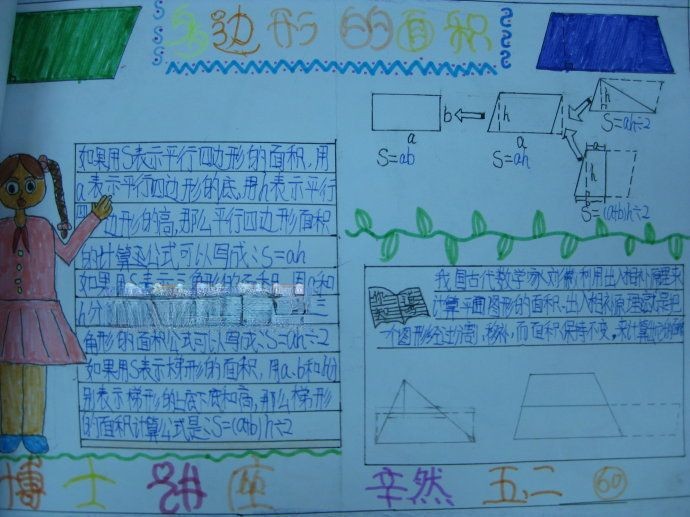 多边形的面积
如果用S表示平行四边形的面积,用
a表示平行四边形的底,用h表示平行
四边形的高,那么平行四边形面积
的计算公式可以写成:S=ah
如果用S表示三角形的面积,用a和
h分
三
角形的面积公式可以写成:S=ah÷2
如果用S表示梯形的面积,用a.b和h分
别表示梯形的上底下底和高,那么梯形
的面积计算公式是:S=(a+b)h÷2
b
a
S=ab
h
a
S=ah
h
S=ah÷2
a
h
b
S=(a+b)h÷2
我国古代数学家刘徽利用出入相补原理来
计算平面图形的面积.出入相补原理就是把
一个图形经过分割,移补,而面积保持不变,来计算出它的面积
博士讲座
辛然 五二 60